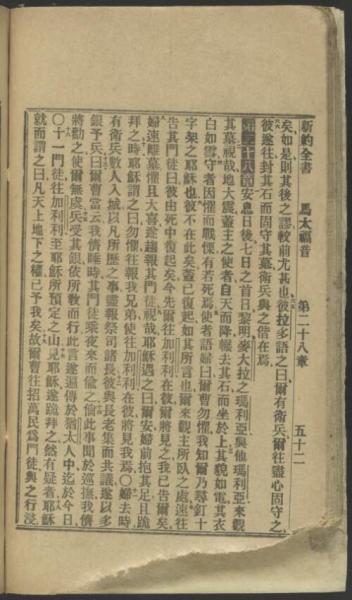 新約全書 馬太福音 第二十八章 五十二
矣如是則其後之謬較前尤甚也彼拉多語之曰爾有衛兵爾往盡心固守之
彼遂往封其石而固守其墓衛兵與之偕在焉
安息日後七日之首日黎明麥大拉之瑪利亞與他瑪利亞來觀
其墓視哉地大震蓋主之使者自天而降輾去其石而坐於上其貌如電其衣
白如雪守者因懼而戰慄有若死焉使者語婦曰爾曹勿懼我知爾乃尋釘十
字架之耶穌也彼不在此矣蓋已復起如其所言也爾來觀主所臥之處速往
告其門徒曰彼由死中復起矣今先爾往加利利在彼爾將見之我已告爾矣
婦速離墓懼且大喜趨報其門徒視哉耶穌遇之曰爾安婦前抱其足且跪
拜之時耶穌謂之曰勿懼往報我兄弟使往加利利在彼將見我焉〇婦去時
有衛兵數人入城以凡所歷之事盡報祭司諸長彼與長老集而共議遂以多
銀予兵曰爾曹當云我儕睡時其門徒乘夜來而偷之倘此事聞於巡撫我儕
將勸之使爾無虞兵受其銀依所教而行此言遂遍傳於猶太人中迄於今日
〇十一門徒往加利利至耶穌所預定之山見耶穌遂跪拜之然有疑者耶穌
就而謂之曰凡天上地下之權已予我矣故爾曹往招萬民為門徒與之行浸